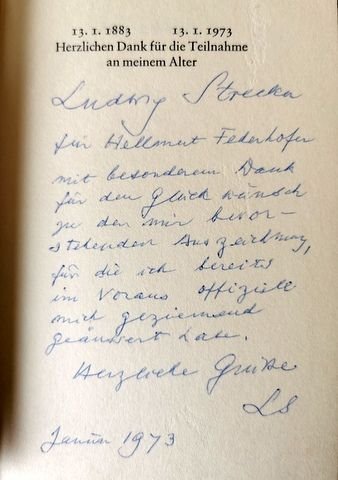 13. 1. 1883 13. 1. 1973
Herzlichen Dank für die Teilnahme
an meinem Alter
Ludwig Strecker
für Hellmut Federhofer
mit besonderem Dank
für den Glückwunsch
zu der mir bevor-
stehenden Auszeichnung,
für die ich bereits
im Voraus offiziell
mich geziemend
geäussert habe.
Herzliche Grüße
LS
Januar 1973